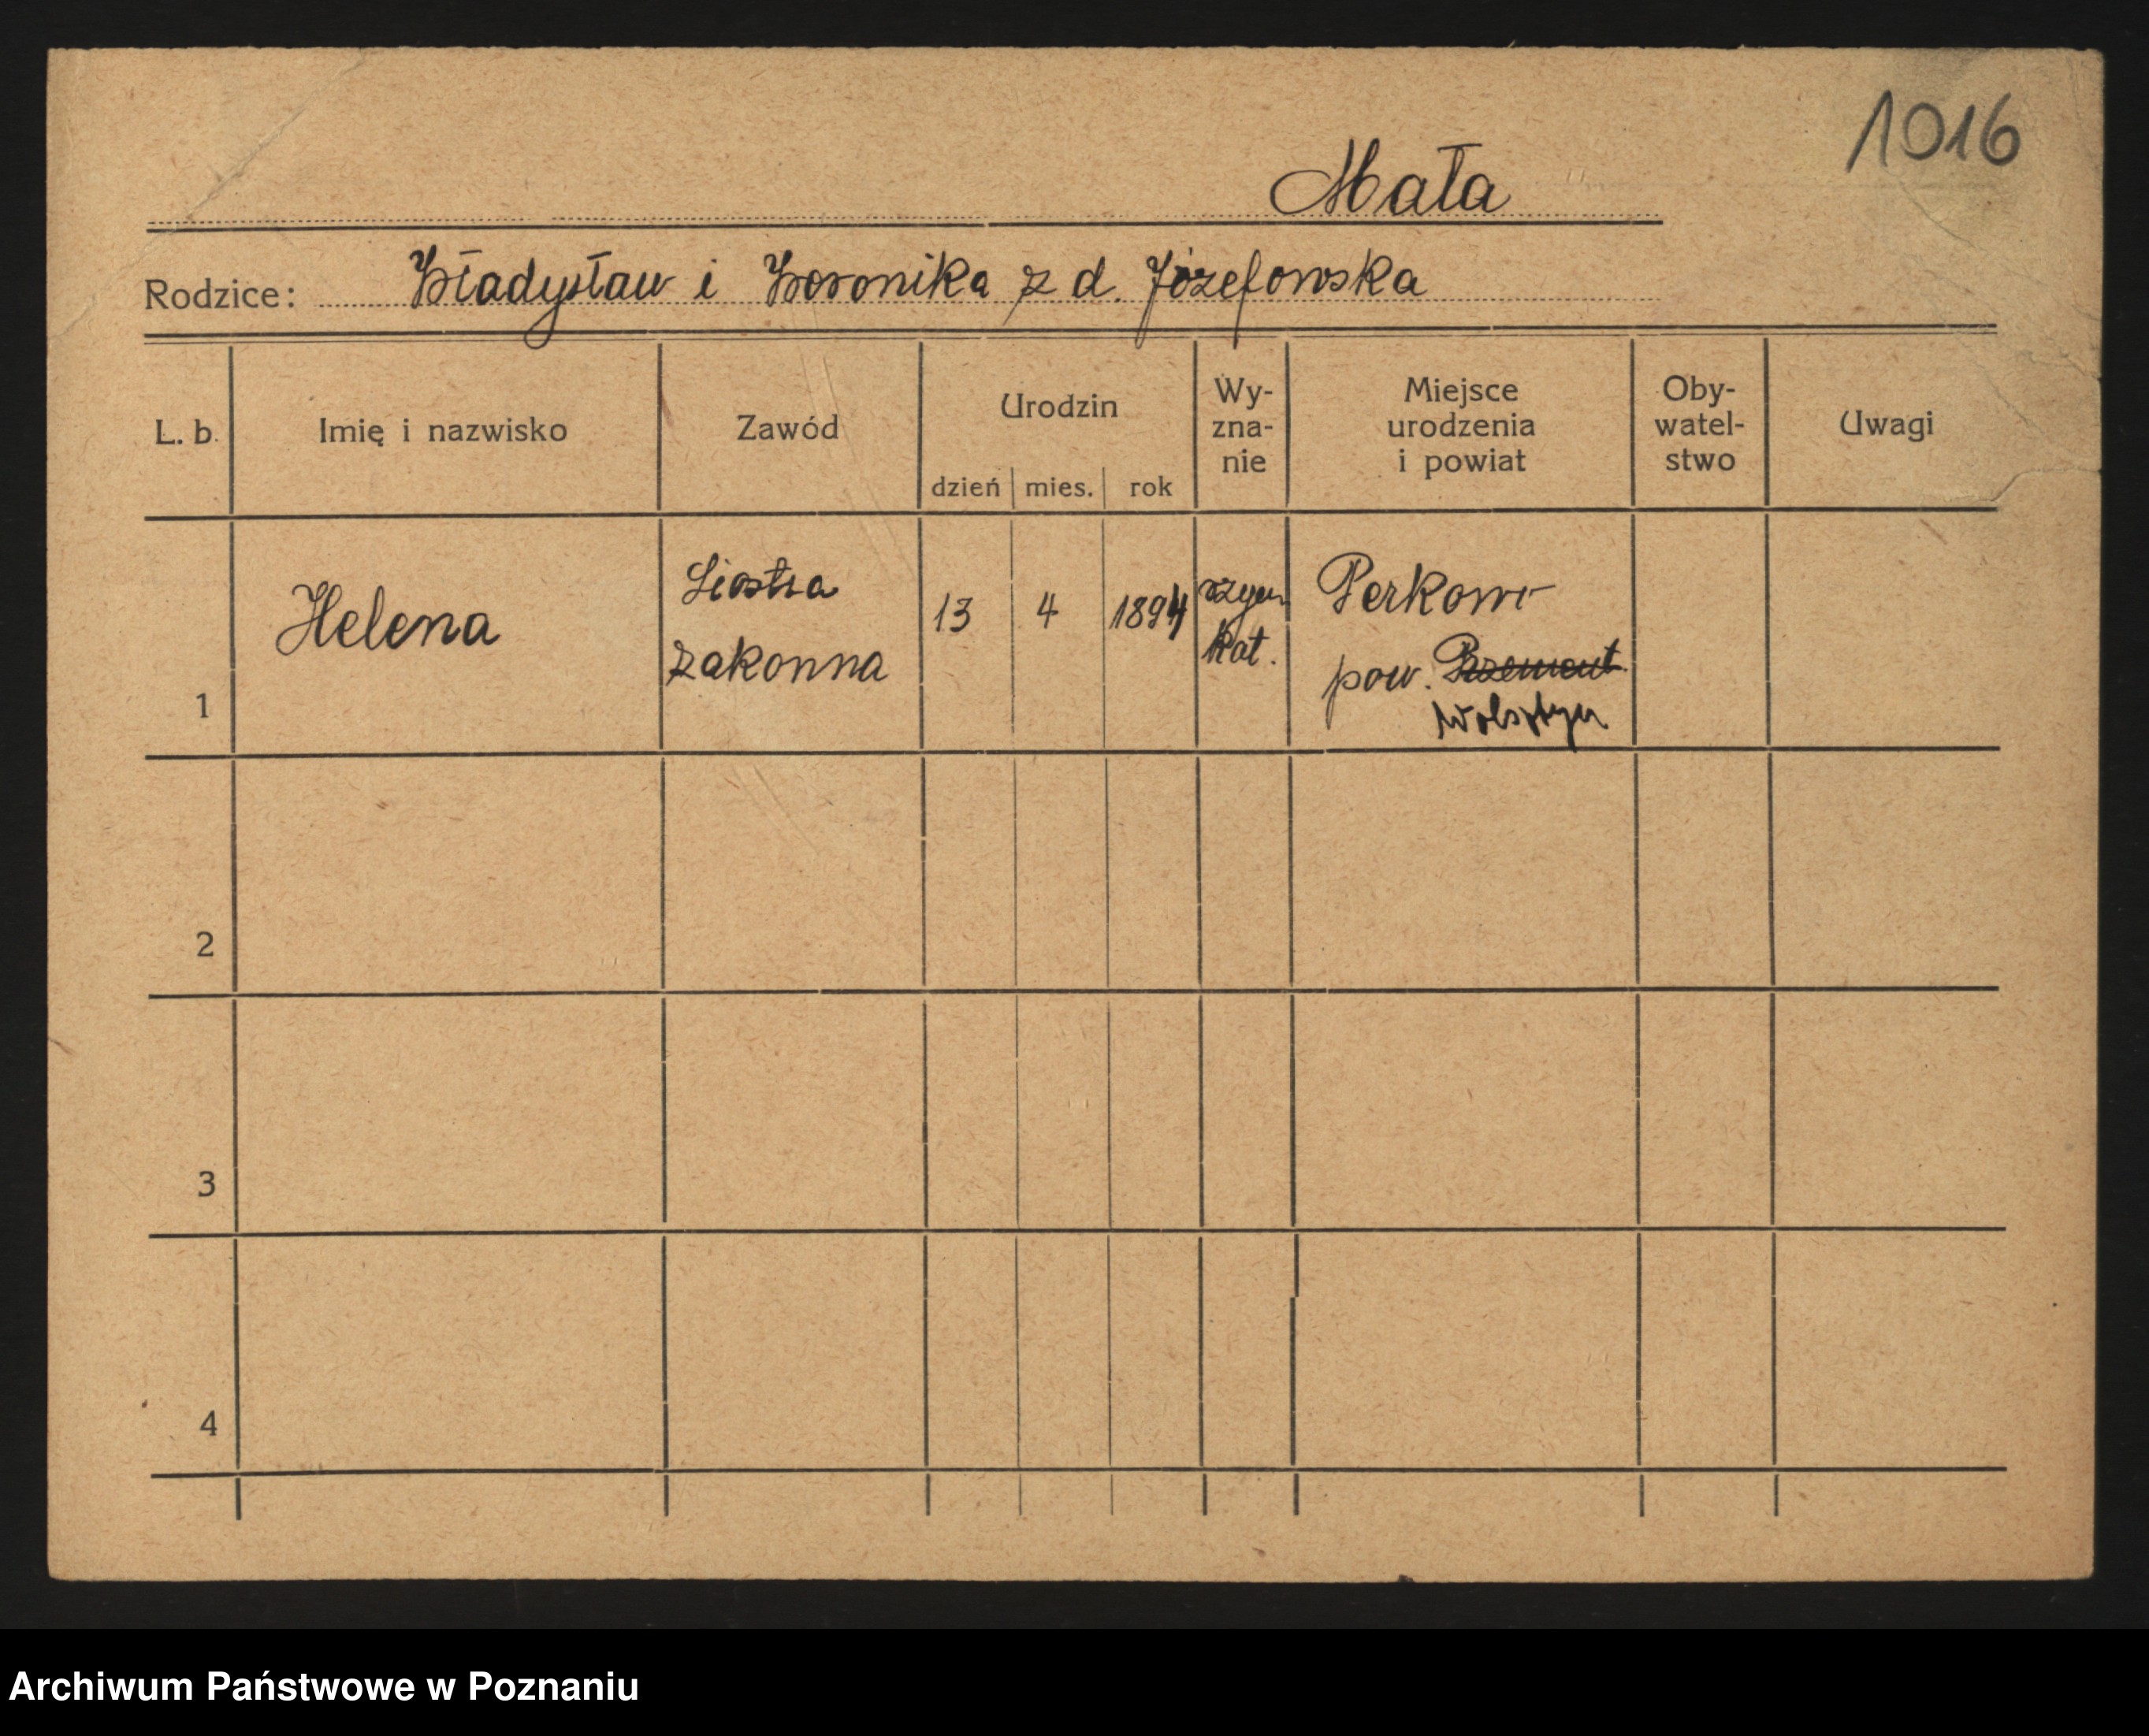 1016
Mała
Rodzice: Władysław i Weronika z d. Józefowska
L. b. Imię i nazwisko Zawód Urodzin dzień mies. rok Wy-zna-nie Miejsce urodzenia i powiat Oby-watel-stwo Uwagi
Helena Siostra 13 4 1894 rzym Perkowo
zakonna kat. pow. Przement
1 Wolsztyn
2
3
4
Archiwum Państwowe w Poznaniu